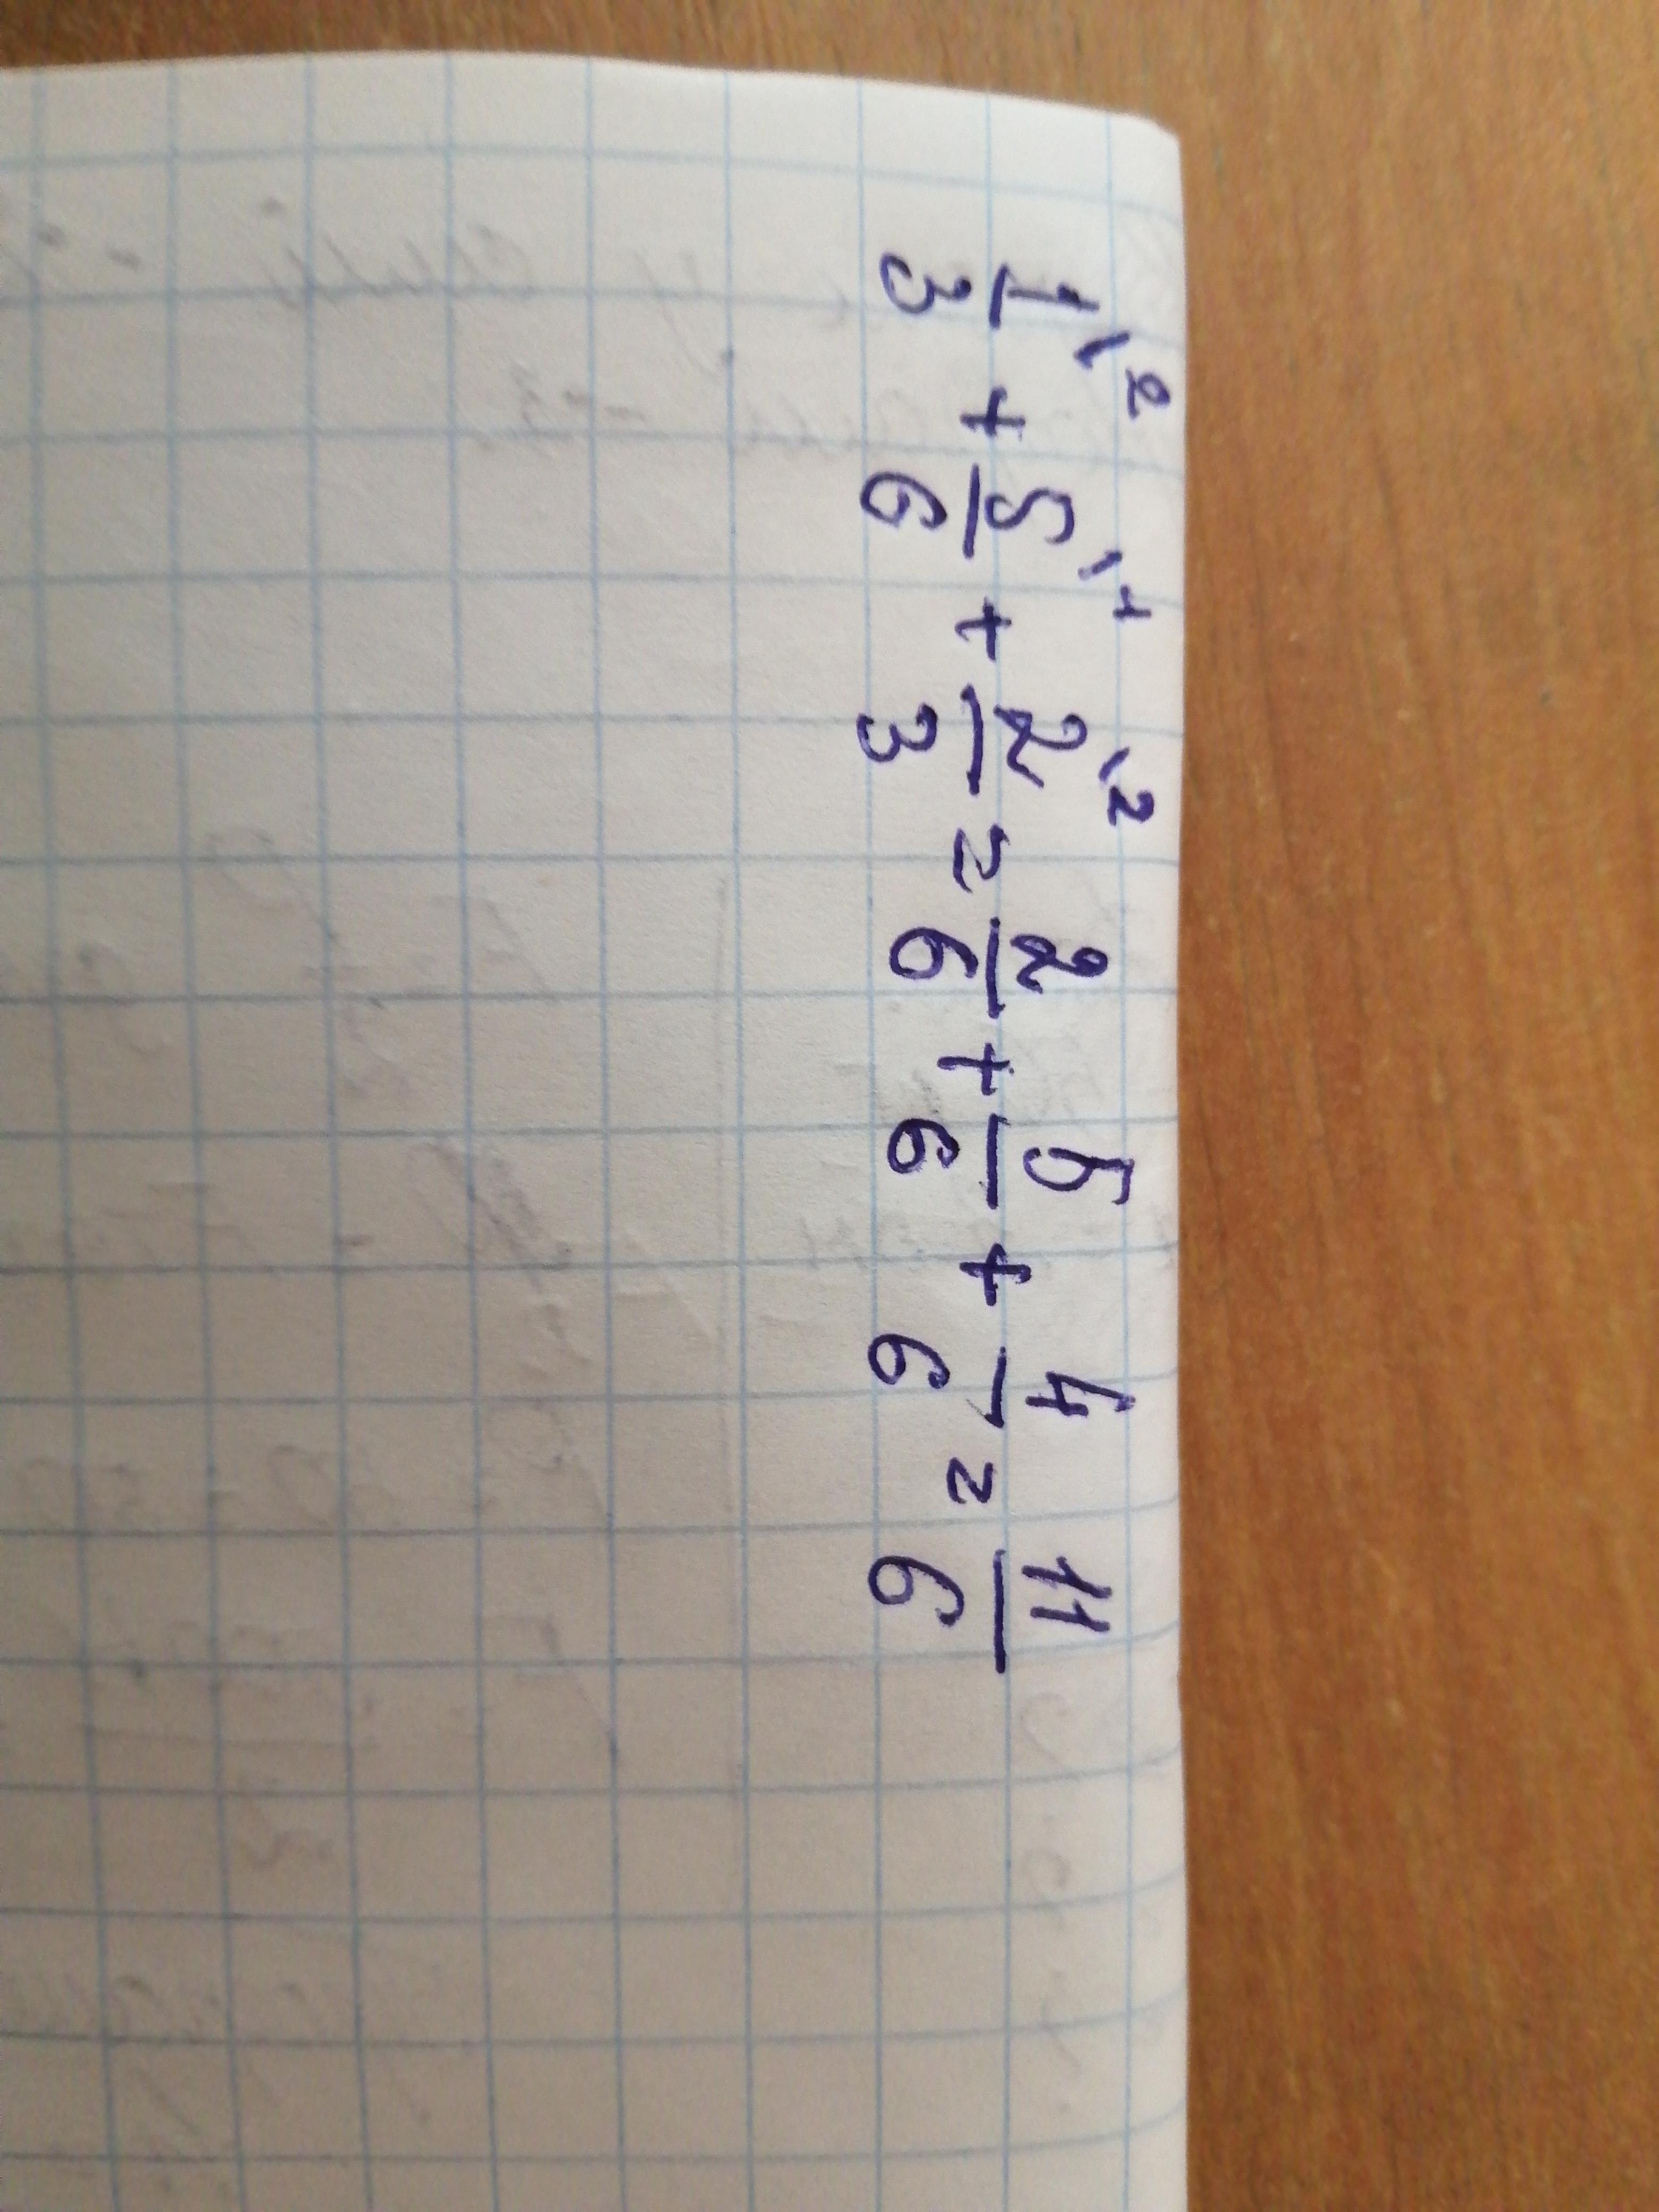 1/3\2 + 5/6\1 + 2/3\2 = 2/6 + 5/6 + 4/6 = 11/6